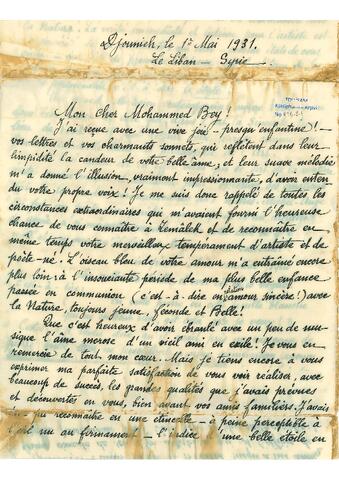 Djounieh, le 1er Mai 1931.
Le Liban – Syrie
Mon Cher Mohammed Bey!
J'ai reçue avec une vive joie – presqu'enfantine! –
vos lettres et vos charmants sonnets, qui reflètent dans leur
limpidité la candeur de votre belle âme, et leur suave mélodie
m'a donné l'illusion, vraiment impressionnante, d'avoir enten-
du votre propre voix! Je me suis donc rappelé de toutes les
circonstances extraordinaires qui m'avaient fourni l'heureuse
chance de vous connaître à Zémalek et de reconnaitre en
même temps votre merveilleux tempérament d'artiste et de
poète-né. L'oiseau bleu de votre amour m'a entraîné encore
plus loin: à l'insouciante période de ma plus belle enfance
passée en communion (c'est-à-dire en amour sincère!) avec
la Nature, toujours jeune, féconde et Belle!
Que c'est heureux d'avoir ébranlé avec un peu de mu-
sique l'âme morose d'un vieil ami en exile! Je vous en
remercie de tout mon cœur. Mais je tiens encore à vous
exprimer ma parfaite satisfaction de vous voir réaliser, avec
beaucoup de succès, les grandes qualités que j'avais prévues
et découvertes en vous, bien avant vos amis familiers. J'avais
pu reconnaitre en une étincelle – à peine perceptible à
l'œil nu au firmament – l'indice d'une belle étoile en